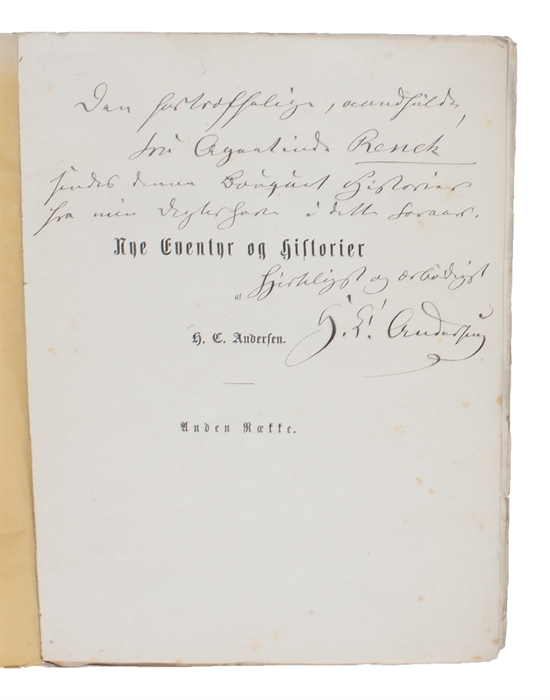 Den fortræffelige, aandfulde,
Fru Agentinde Renck
sendes denne Bouquet Historier
fra min Digterhave i dette Foraar.
Nye Eventyr og Historier
Hjerteligst og ærbødigst
af
H. C. Andersen
H. C. Andersen.
Anden Række.